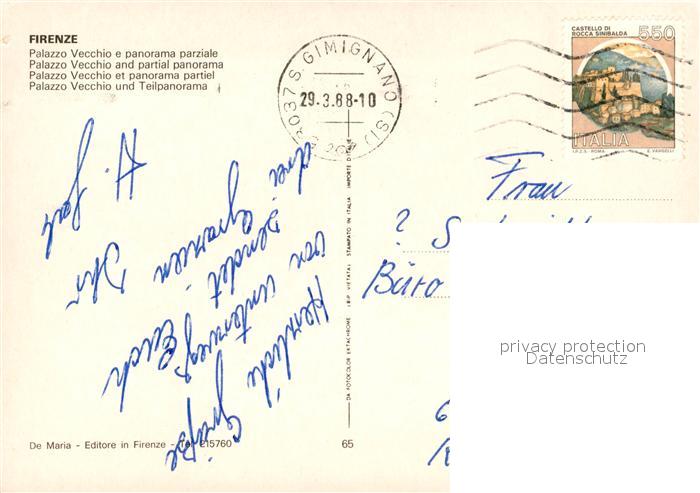 FIRENZE
Palazzo Vecchio e panorama parziale
Palazzo Vecchio and partial panorama
Palazzo Vecchio et panorama partiel
Palazzo Vecchio und Teilpanorama
Herzliche Grüße
von unterwegs
sendet Euch
Ihr
A.
S. GIMIGNANO (SI)
29.3.88-10
CASTELLO DI
ROCCA SINIBALDA
550
ITALIA
I.P.Z.S. - ROMA
E. VANGELLI
Frau
? S
Büro
6
privacy protection
Datenschutz
DA FOTOCOLOR EKTACHROME (RIP. VIETATA) STAMPATO IN ITALIA
De Maria - Editore in Firenze - Tel. 215760
65